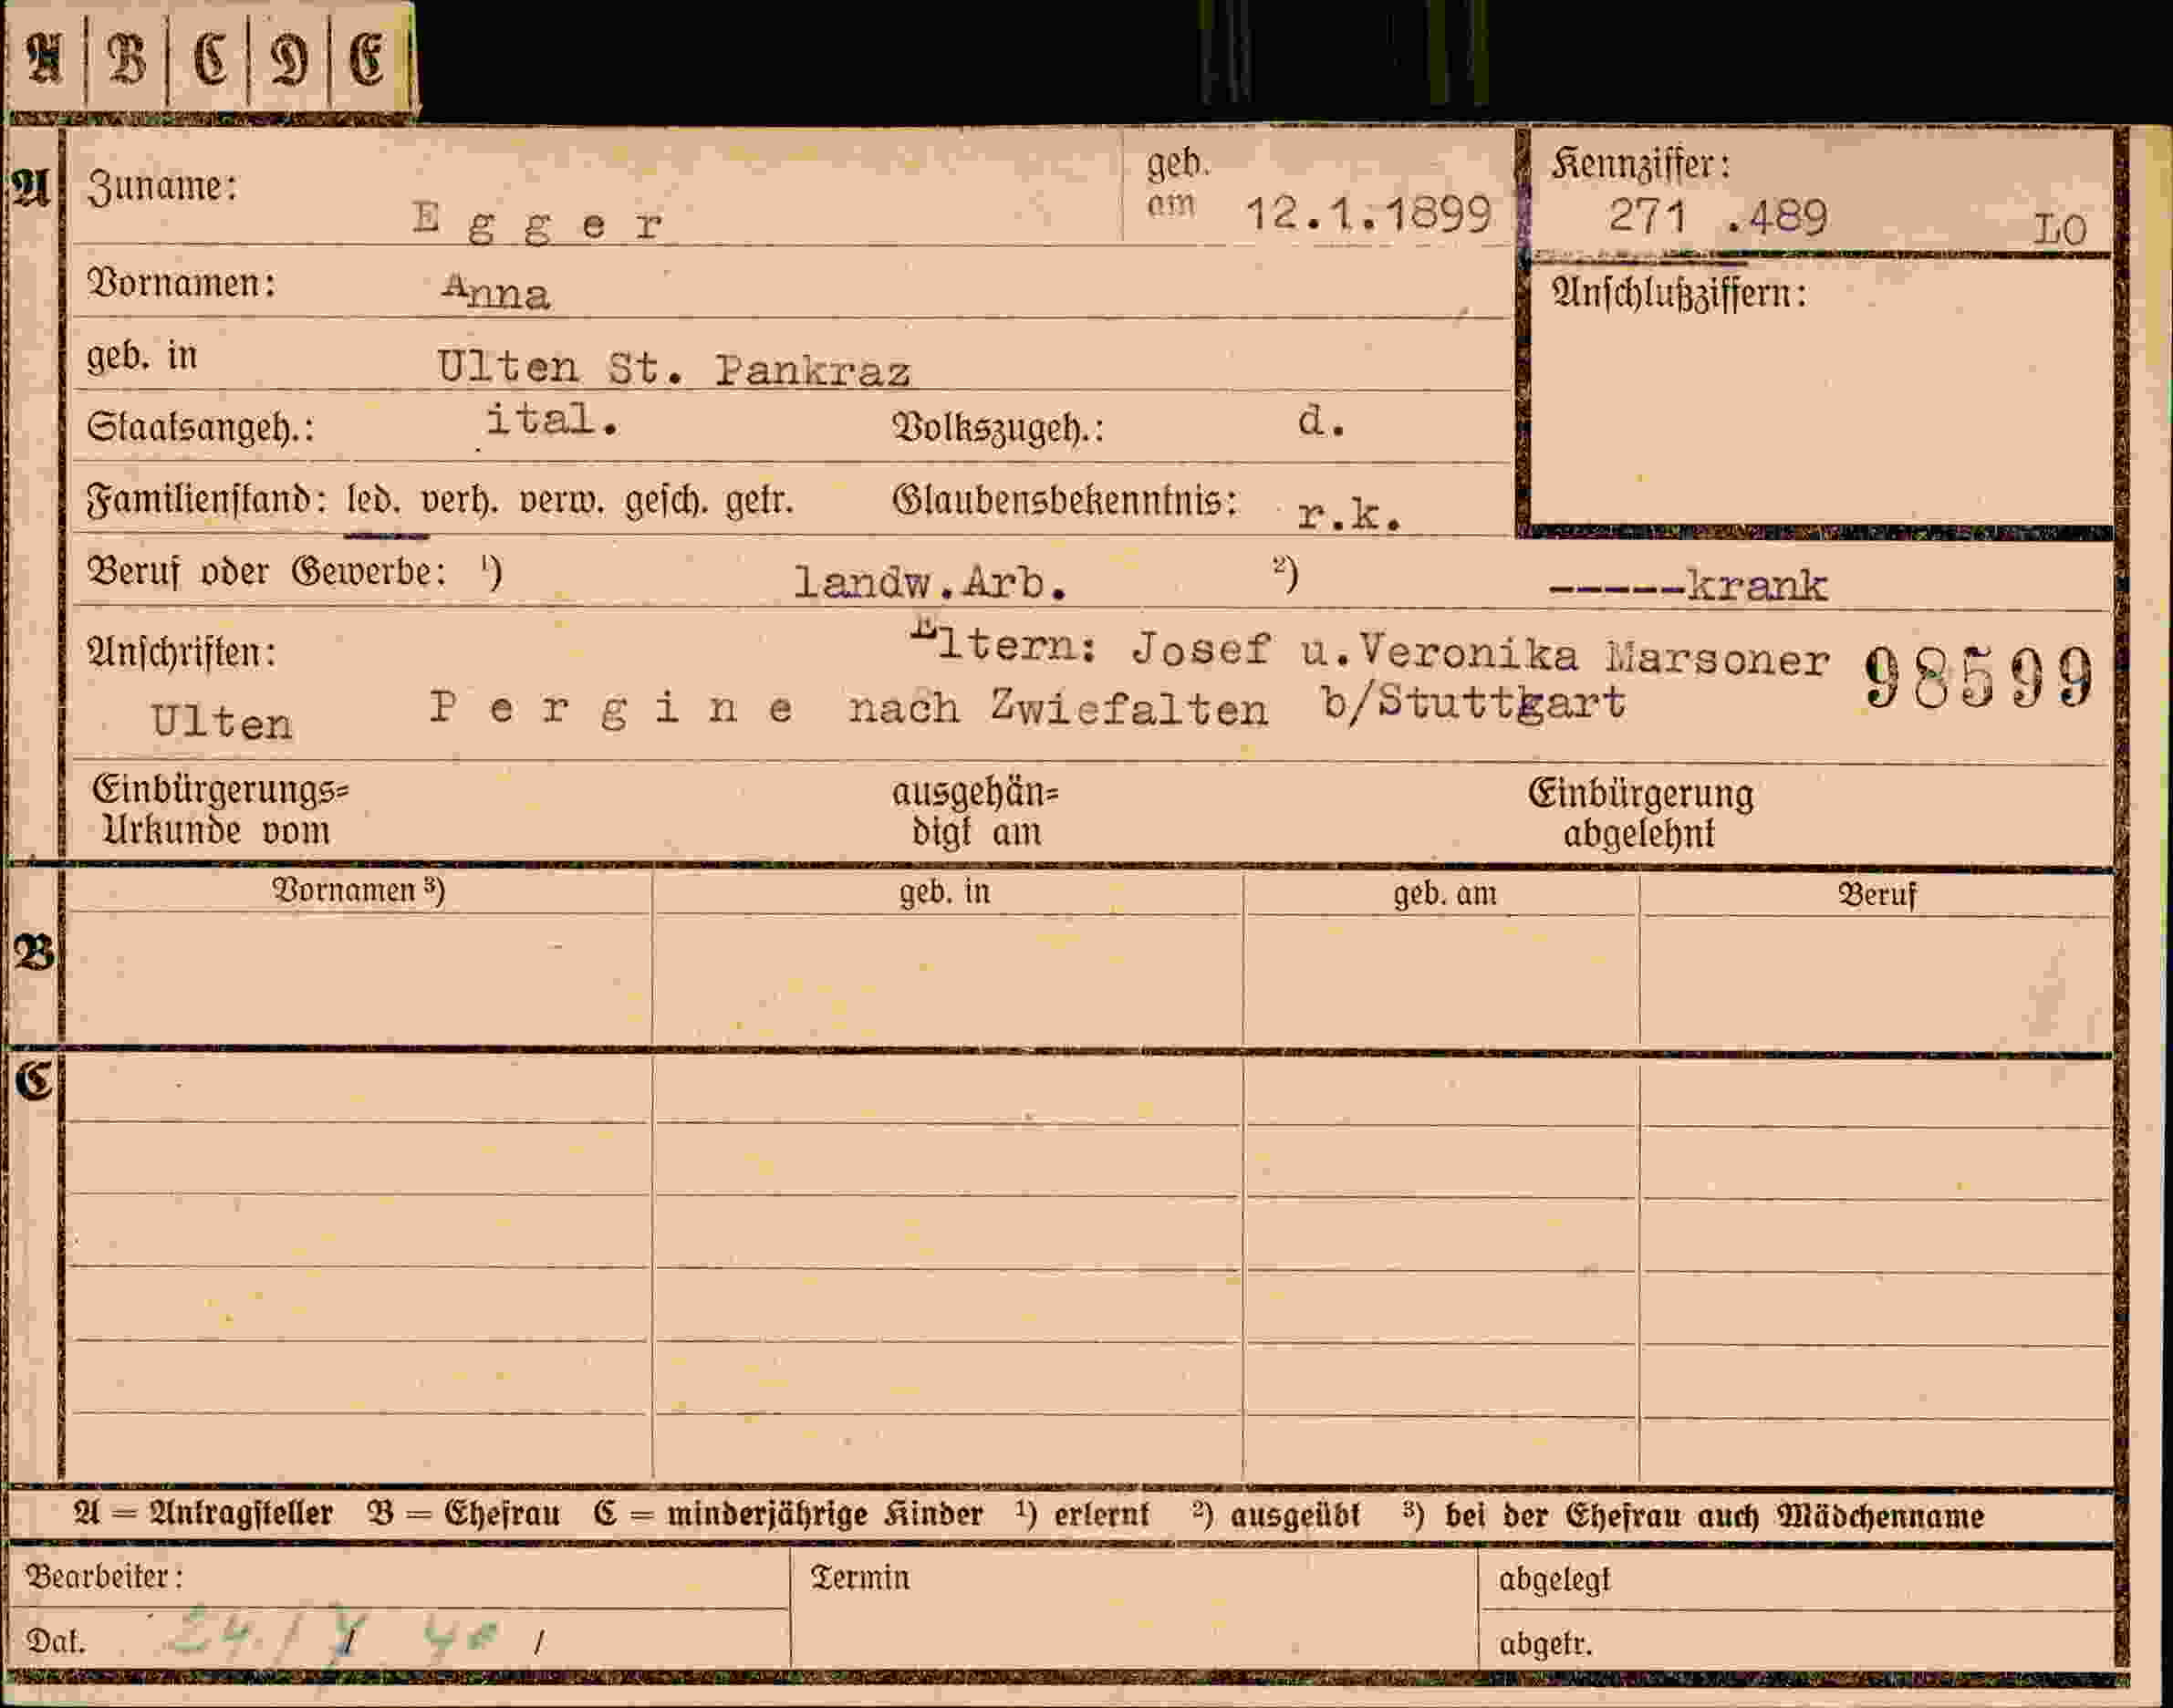 A B C D E
A Zuname: Egger geb. am 12.1.1899 Kennziffer: 271 .489 LO
Vornamen: Anna Anschlußziffern:
geb. in Ulten St. Pankraz
Staatsangeh.: ital. Volkszugeh.: d.
Familienstand: led. verh. verw. gesch. getr. Glaubensbekenntnis: r.k.
Beruf oder Gewerbe: ¹) landw.Arb. ²) -----krank
Anschriften: Eltern: Josef u.Veronika Marsoner 98599
Ulten Pergine nach Zwiefalten b/Stuttgart
Einbürgerungs= ausgehän= Einbürgerung
Urkunde vom digt am abgelehnt
Vornamen ³) geb. in geb. am Beruf
B
C
A = Antragsteller B = Ehefrau C = minderjährige Kinder ¹) erlernt ²) ausgeübt ³) bei der Ehefrau auch Mädchenname
Bearbeiter: Termin abgelegt
Dat. 24./ / 40 / abgetr.